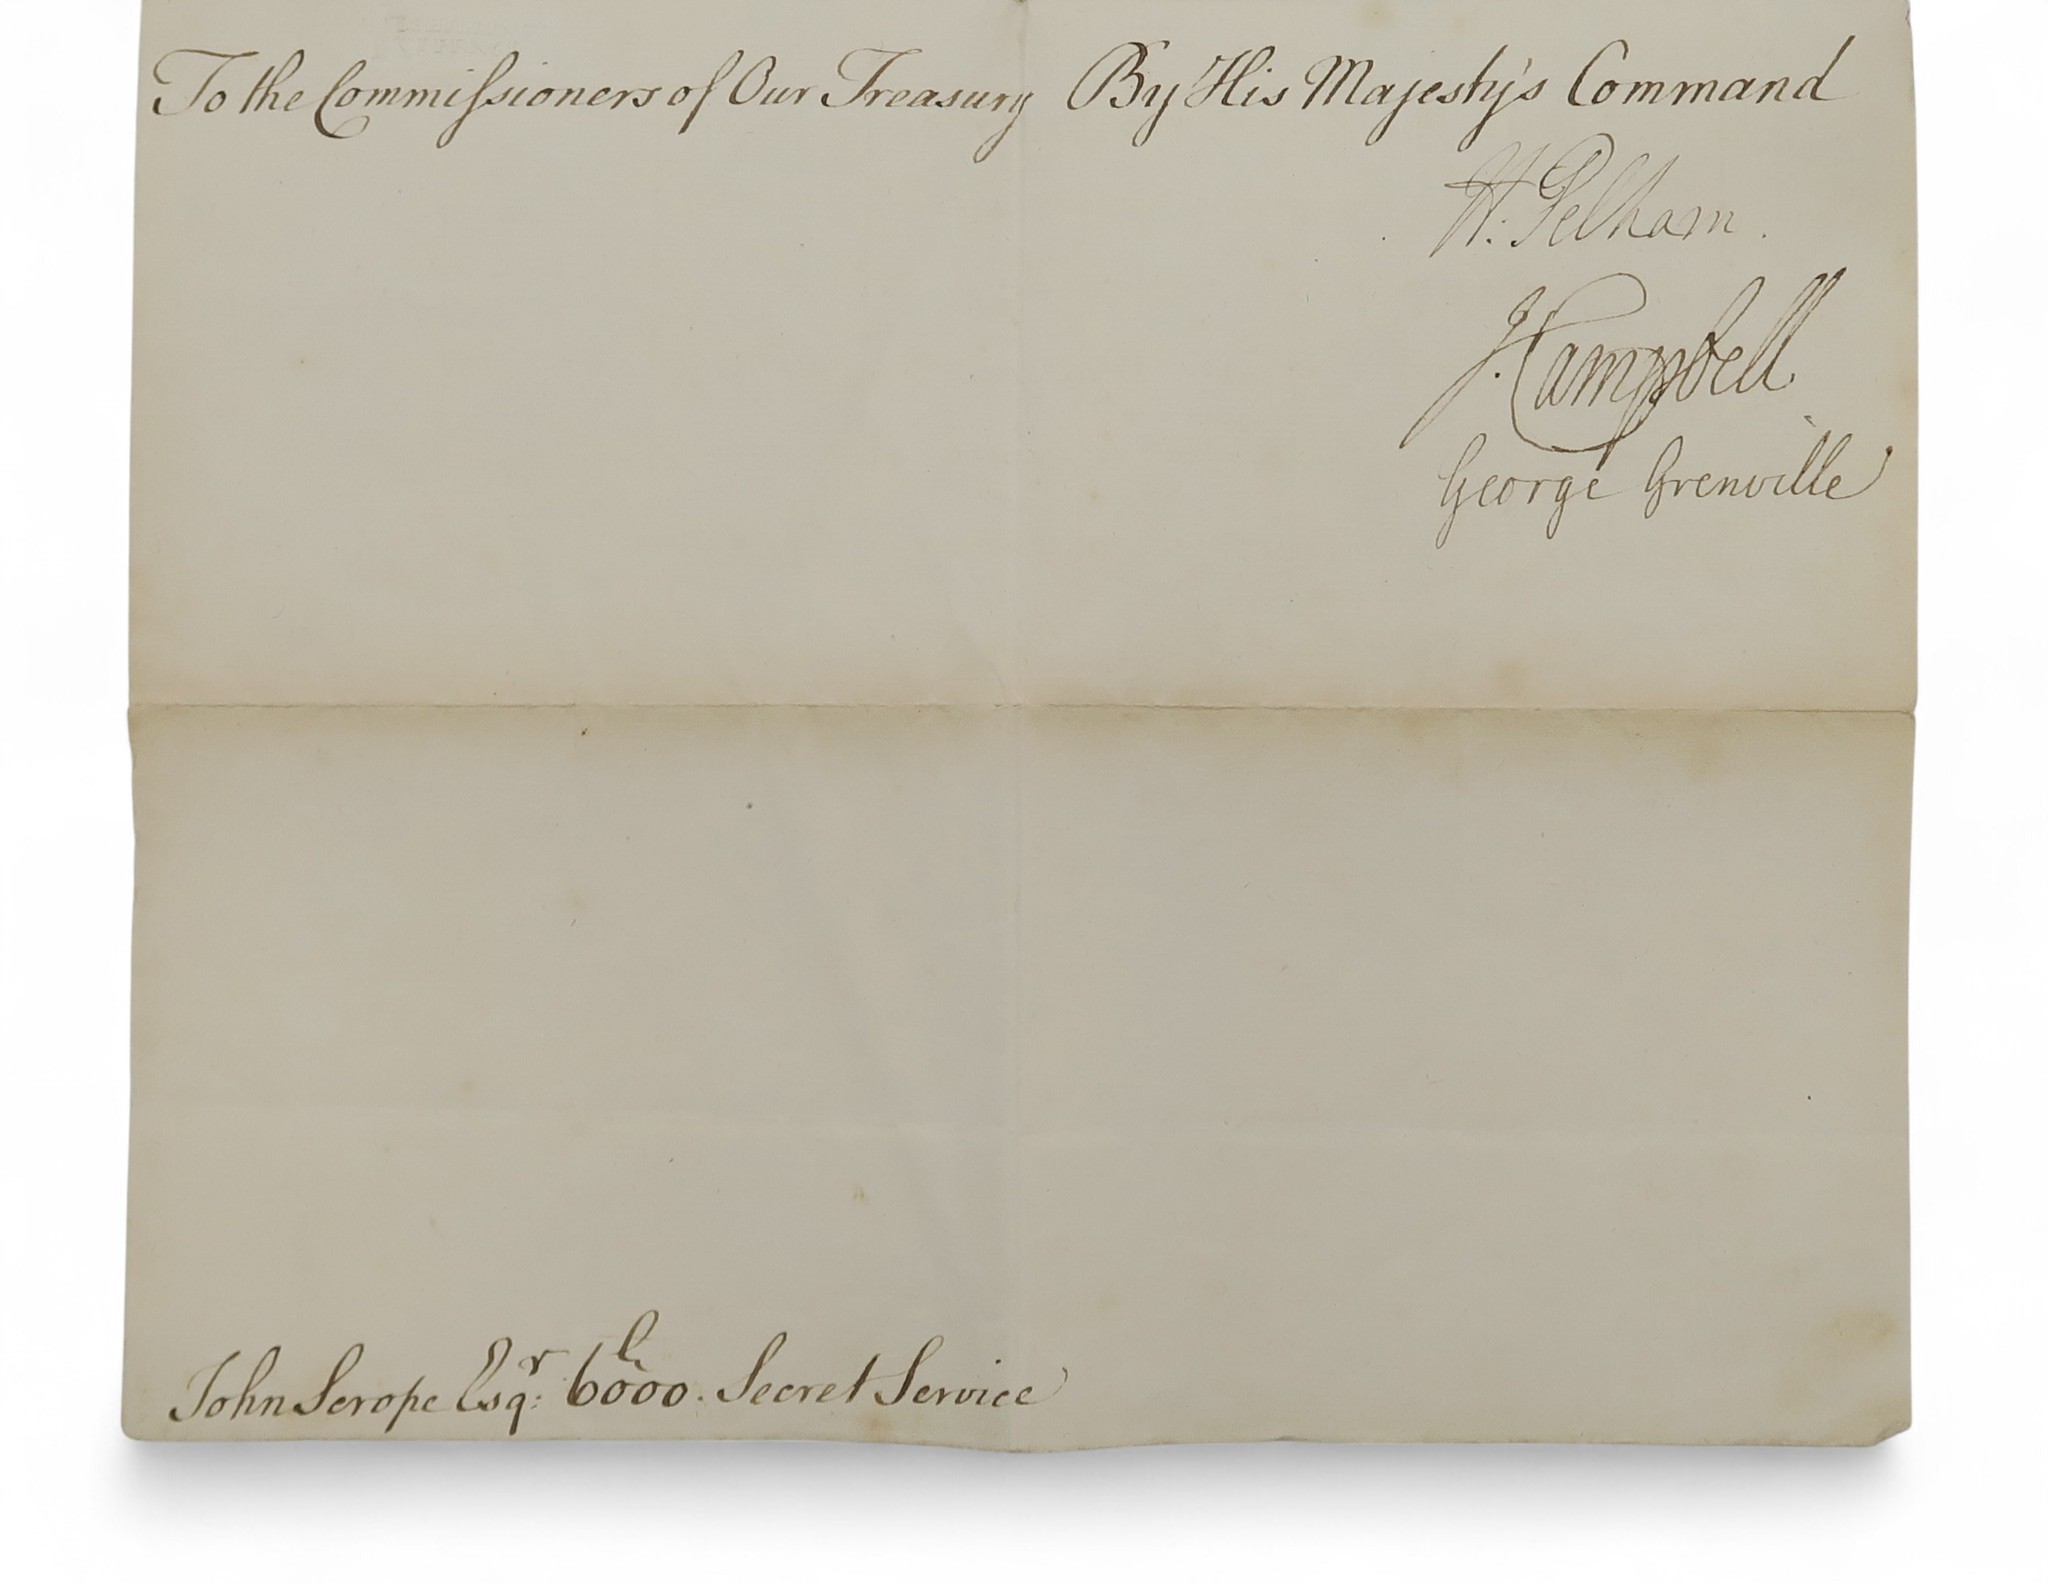 To the Commiſsioners of Our Treasury By His Majesty's Command
H: Pelham.
J. Campbell.
George Grenville
John Scrope Esqr: 6000l. Secret Service